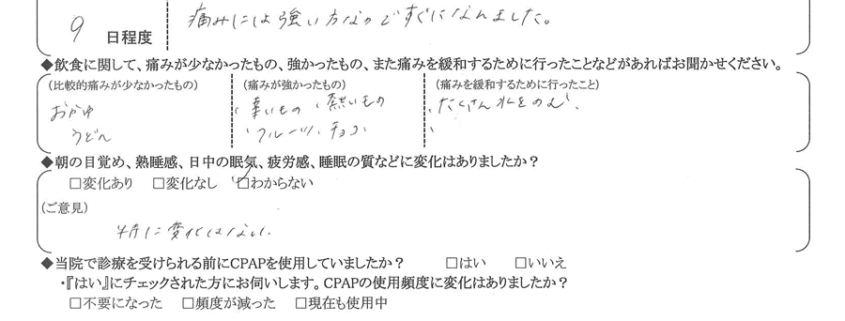 痛みには強い方なのですぐになれました。
9 日程度
◆飲食に関して、痛みが少なかったもの、強かったもの、また痛みを緩和するために行ったことなどがあればお聞かせください。
(比較的痛みが少なかったもの) (痛みが強かったもの) (痛みを緩和するために行ったこと)
おかゆ 、熱いもの 、たくさん水をのむ、
うどん 、フルーツ、チョコ 、
◆朝の目覚め、熟睡感、日中の眠気、疲労感、睡眠の質などに変化はありましたか?
□変化あり □変化なし ☑わからない
(ご意見)
特に変化はない。
◆当院で診療を受けられる前にCPAPを使用していましたか? □はい □いいえ
・『はい』にチェックされた方にお伺いします。CPAPの使用頻度に変化はありましたか?
□不要になった □頻度が減った □現在も使用中